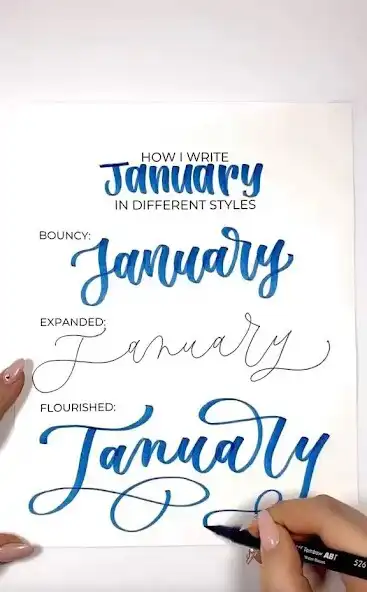 HOW I WRITE
January
IN DIFFERENT STYLES
BOUNCY:
January
EXPANDED:
January
FLOURISHED:
January
Rainbow ABT
526